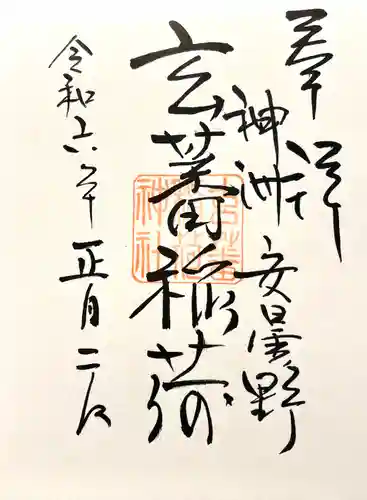 奉拝
神州 安曇野
玄蕃稲荷
令和六年 正月二日
玄蕃稲荷神社